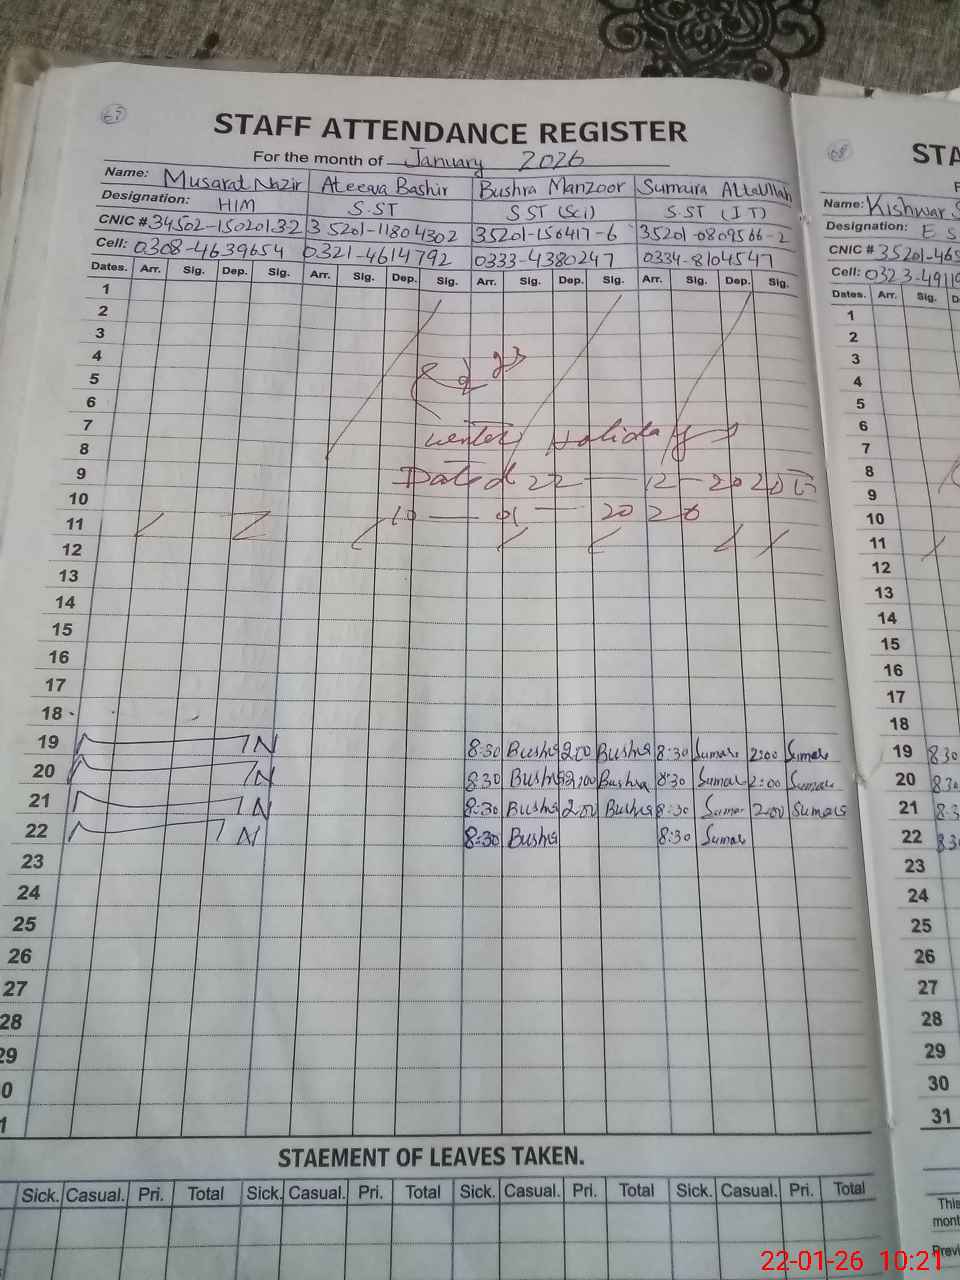 67
STAFF ATTENDANCE REGISTER
For the month of January 2026
Name: Musarat Nazir Ateeqa Bashir Bushra Manzoor Sumaira Attaullah
Designation: HIM S.ST S ST (Sci) S.ST (IT)
CNIC # 34502-1502013-2 35201-11804302 35201-150417-6 35201-0809566-2
Cell: 0308-4639654 0321-4614792 0333-4380247 0334-8104547
Dates. Arr. Sig. Dep. Sig. Arr. Sig. Dep. Sig. Arr. Sig. Dep. Sig. Arr. Sig. Dep. Sig.
1
2
3
4
5
6
7 winter Holidays
8
9 Dated 22-12-2025
10 10-01-2026
11
12
13
14
15
16
17
18
19 8:30 Bushra 2:00 Bushra 8:30 Sumai 2:00 Sumai
20 8:30 Bushra 2:00 Bushra 8:30 Sumai 2:00 Sumai
21 8:30 Bushra 2:00 Bushra 8:30 Sumai 2:00 Sumais
22 8:30 Bushra 8:30 Sumai
23
24
25
26
27
28
29
0
1
STAEMENT OF LEAVES TAKEN.
Sick. Casual. Pri. Total Sick. Casual. Pri. Total Sick. Casual. Pri. Total Sick. Casual. Pri. Total
68
STA
Name: Kishwar S
Designation: E S
CNIC # 35201-465
Cell: 0323-4911
Dates. Arr. Sig. D
1
2
3
4
5
6
7
8
9
10
11
12
13
14
15
16
17
18
19 830
20 830
21 8:3
22 830
23
24
25
26
27
28
29
30
31
This
mont
Previ
22-01-26 10:21